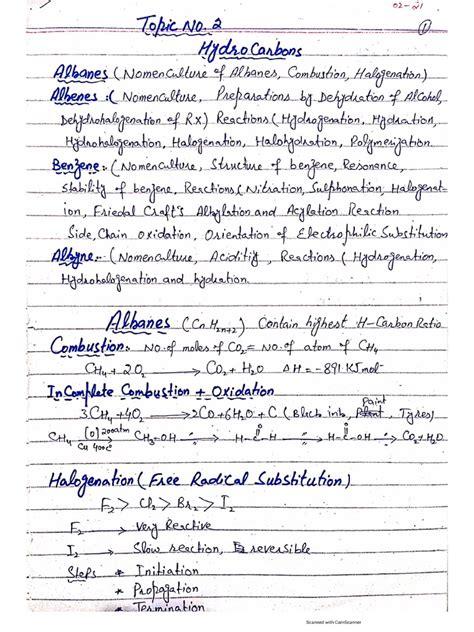 02-21
Topic No. 2
①
HydroCarbons
Albanes (Nomenculture of Albanes, Combustion, Halogenation)
Albenes :( Nomenculture, Preparations by Dehydration of Alcohol,
Dehydrohalogenation of RX) Reactions (Hydrogenation, Hydration,
Hydrohalogenation, Halogenation, Halohydration, Polymerization.
Benzene:- (Nomenculture, Structure of benzene, Resonance,
stability of benzene, Reactions (Nitration, Sulphonation, Halogenat-
ion, Friedal Craft's Albylation and Acylation Reaction
Side, Chain oxidation, Orientation of Electrophilic Substitution
Albyne:- (Nomenculture, Acidity, Reactions (Hydrogenation,
Hydrohalogenation and hydration.
Albanes (CnH2n+2) Contain highest H-Carbon Ratio
Combustion:- No. of moles of CO2 = No. of atom of CH4
CH4 + 2O2 → CO2 + H2O ΔH = -891 KJmol-
InComplete Combustion + Oxidation
3CH4 + 4O2 → 2CO + 6H2O + C (Black ink, Paint, Tyres)
CH4 [O] 200atm Cu 400C → CH3-OH → H-C-H → H-C-OH → CO2 + H2O
Halogenation (Free Radical Substitution)
F2 > Cl2 > Br2 > I2
F2 → Very Reactive
I2 → Slow reaction, reversible
Steps * Initiation
* Propogation
* Termination
Scanned with CamScanner